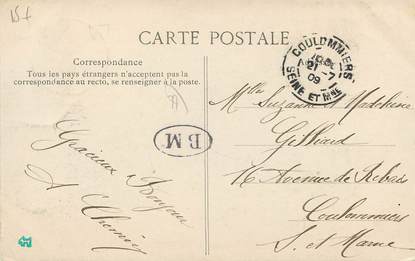 15 f
CARTE POSTALE
Correspondance
Tous les pays étrangers n'acceptent pas la
correspondance au recto, se renseigner à la poste.
COULOMMIERS
21 -7
09
SEINE ET MNE
BM
Gracieux Bonjour
A
Melles Suzanne et Madeleine
Gilliard
16 Avenue de Rebais
Coulommiers
S. et Marne